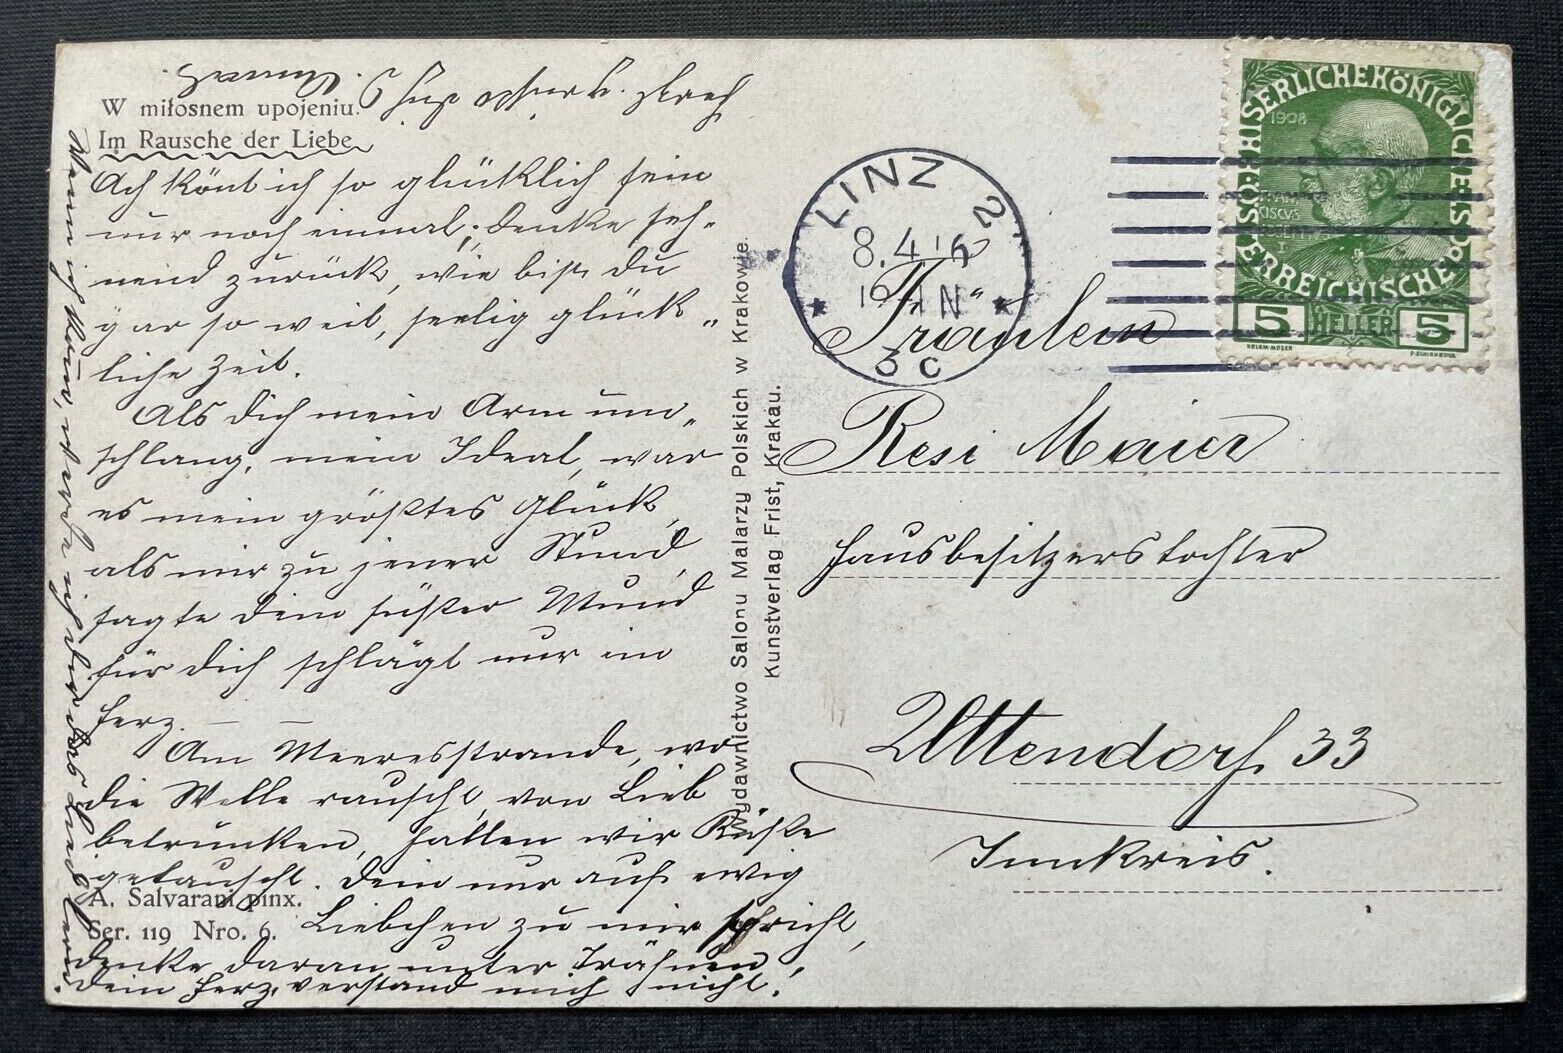 W miłosnem upojeniu.
Im Rausche der Liebe
Ach könt ich so glücklich sein
nur noch einmal, denke seh-
nend zurück, wie bist du
gar so weit, seelig glück-
liche Zeit.
Als dich mein Arm um-
schlang, mein Ideal, war
es mein größtes Glück,
als mir zu jener Stund,
sagte dein süßer Mund
für dich schlägt nur im
Herz. — —
Am Meeresstrande, wo
die Welle rauscht, von Lieb
betrunken, hatten wir Küße
getauscht. Dein nur auf ewig
Liebchen zu mir spricht,
denke daran unter Tränen,
dein Herz verstand mich nicht.
A. Salvarani pinx.
Ser. 119 Nro. 6.
Wenn ich könnt, ich dir das
Wydawnictwo Salonu Malarzy Polskich w Krakowie.
Kunstverlag Frist, Krakau.
LINZ 2
8.4.16
3c
KAISERLICHE KÖNIGLICHE ÖSTERREICHISCHE POST
1908
FRANCISCVS
I
5 HELLER 5
Fräulein
Resi Maier
Hausbesitzerstochter
Uttendorf 33
Innkreis.